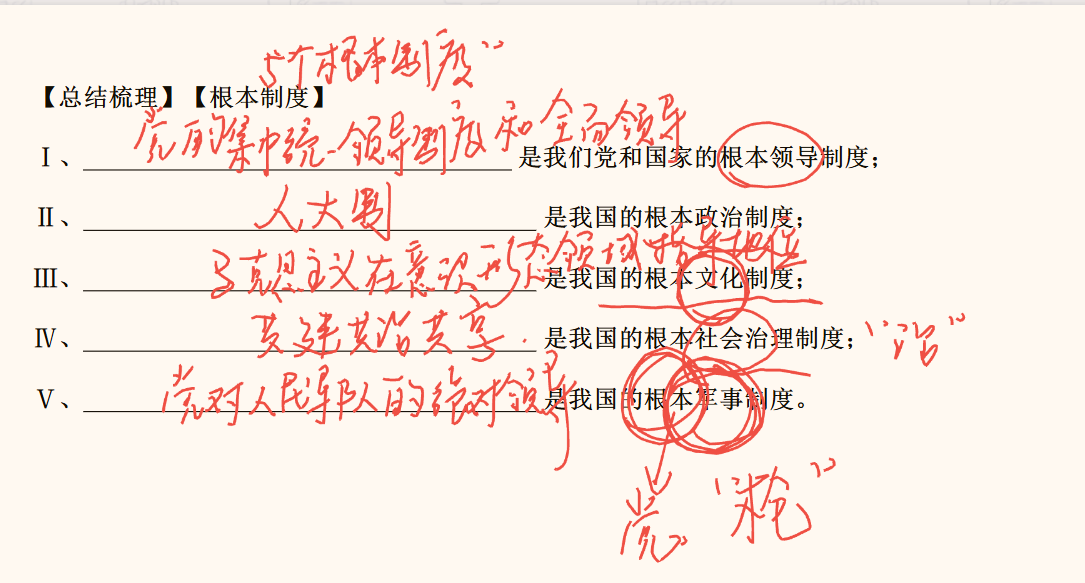 5个根本制度”
【总结梳理】【根本制度】
党的集中统一领导制度和全面领导
Ⅰ、 是我们党和国家的根本领导制度；
人大制
Ⅱ、 是我国的根本政治制度；
马克思主义在意识形态领域指导地位
Ⅲ、 是我国的根本文化制度；
共建共治共享.
Ⅳ、 是我国的根本社会治理制度； “治”
党对人民军队的绝对领导
Ⅴ、 是我国的根本军事制度。
党 “枪”